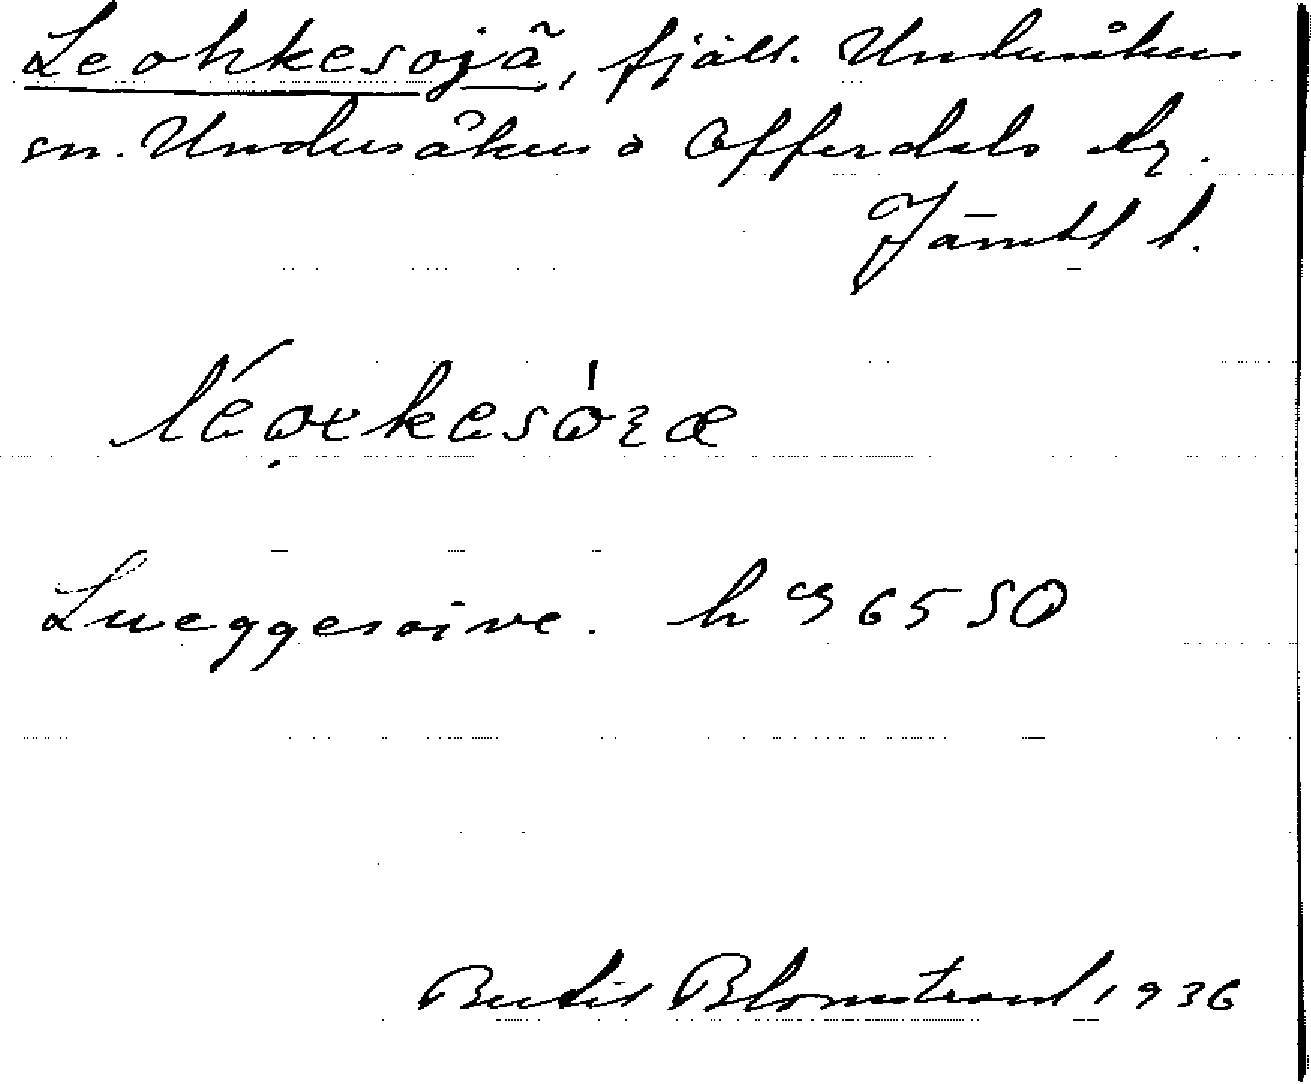 Leohkesojä, fjäll. Undersåkers
sn. Undersåkers o Offerdals tg.
Jämtl l.
Lueggesoive. h 96550
Bertil Blomstrand 1936